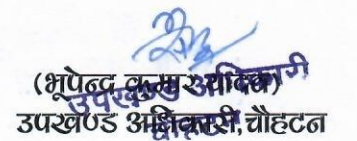 (भूपेन्द्र कुमार यादव)
उपखण्ड अधिकारी
उपखण्ड अधिकारी, चौहटन